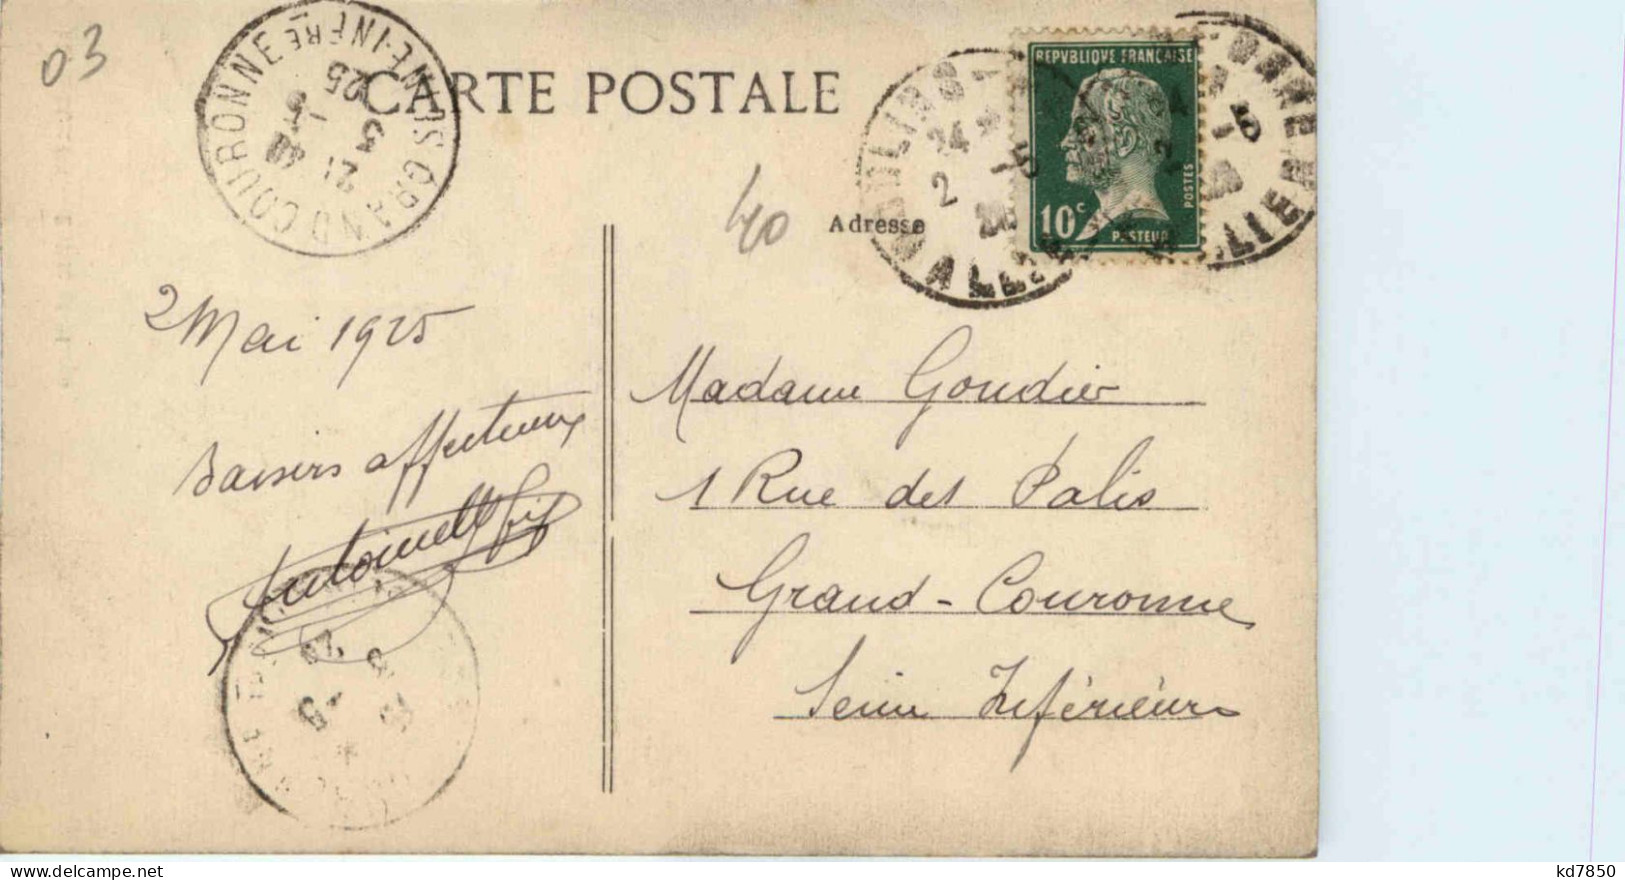 03
GRAND COURONNE SEINE-INFRE
21
3
1 5
25
CARTE POSTALE
REPVBLIQUE FRANÇAISE
POSTES
10c
PASTEUR
24
2
-5
ALLIER
-5
40
Adresse
2 Mai 1925
Baisers affectueux
Antoinette
Madame Goudier
1 Rue des Palis
Grand-Couronne
Seine Inférieure
kd7850